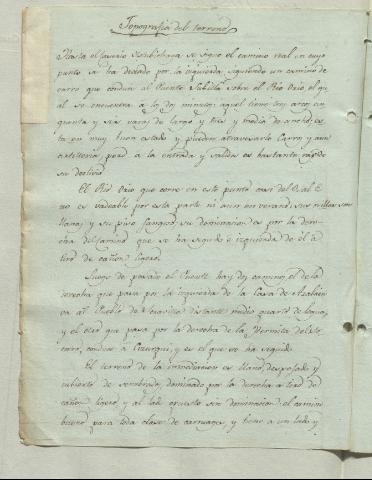 Topografia del terreno
Hasta el parario se siguio el camino real en cuyo
punto se ha dexado por la izquierda siguiendo un camino de
carro que conduce al Puente Subilla sobre el Rio Oria, el qu
al se encuentra á los dos minutos: aquel tiene tres arcos cin
quenta y seis varas de largo y tres y media de ancho, es
ta en muy buen estado y pueden atravesarlo Carros y aun
artilleria, pero á la entrada y salida es bastante rapido
su declivio
El Rio Oria que corre en este punto casi del O. al E.
no es vadeable por esta parte ni aun en verano, sus orillas son
llanas y su piso fangoso; su dominacion es por la dere
cha del camino que se ha seguido e izquierda de él á
tiro de cañon ligero.
Luego de pasado el Puente hay dos caminos, el de la
derecha que pasa por la izquierda de la Casa de
va al Pueblo de distante medio quarto de legua,
y el otro que pasa por la derecha de la Hermita del
conduce á y es el que se ha seguido
El terreno de la inmediacion es llano, despejado y
cubierto de sembrados, dominado por la derecha á tiro de
cañon ligero, y al lado opuesto sin dominacion: el camino
bueno para toda clase de carruages, y tiene á un lado y